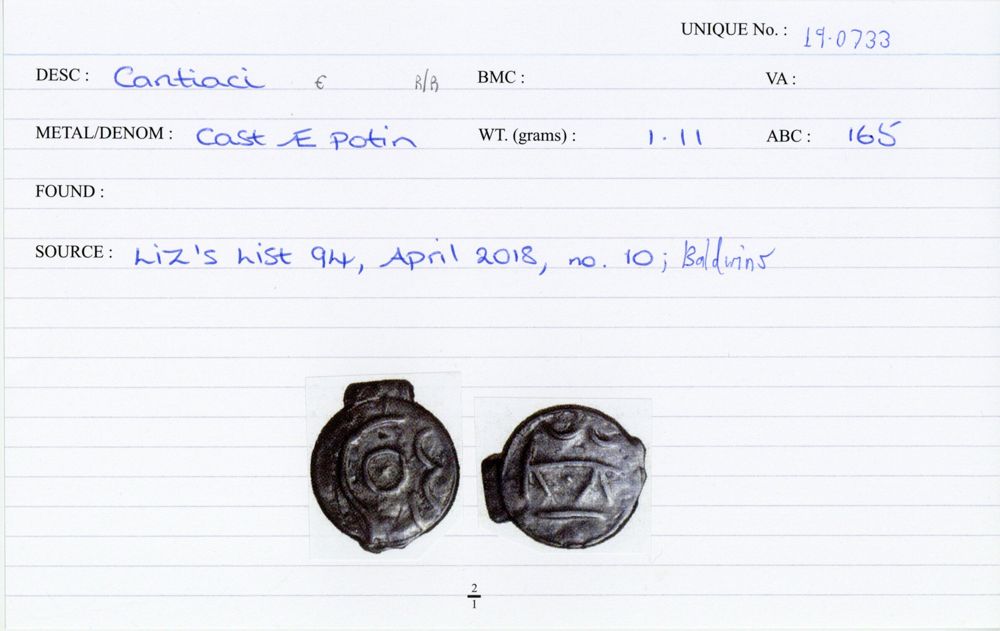 UNIQUE No. : 19.0733
DESC : Cantiaci € R/R BMC : VA :
METAL/DENOM : Cast Æ Potin WT. (grams) : 1.11 ABC : 165
FOUND :
SOURCE : Liz's List 94, April 2018, no. 10; Baldwins
2
1